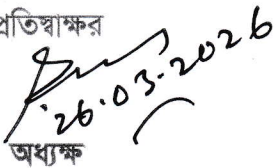 প্রতিস্বাক্ষর
26.03.2026
অধ্যক্ষ